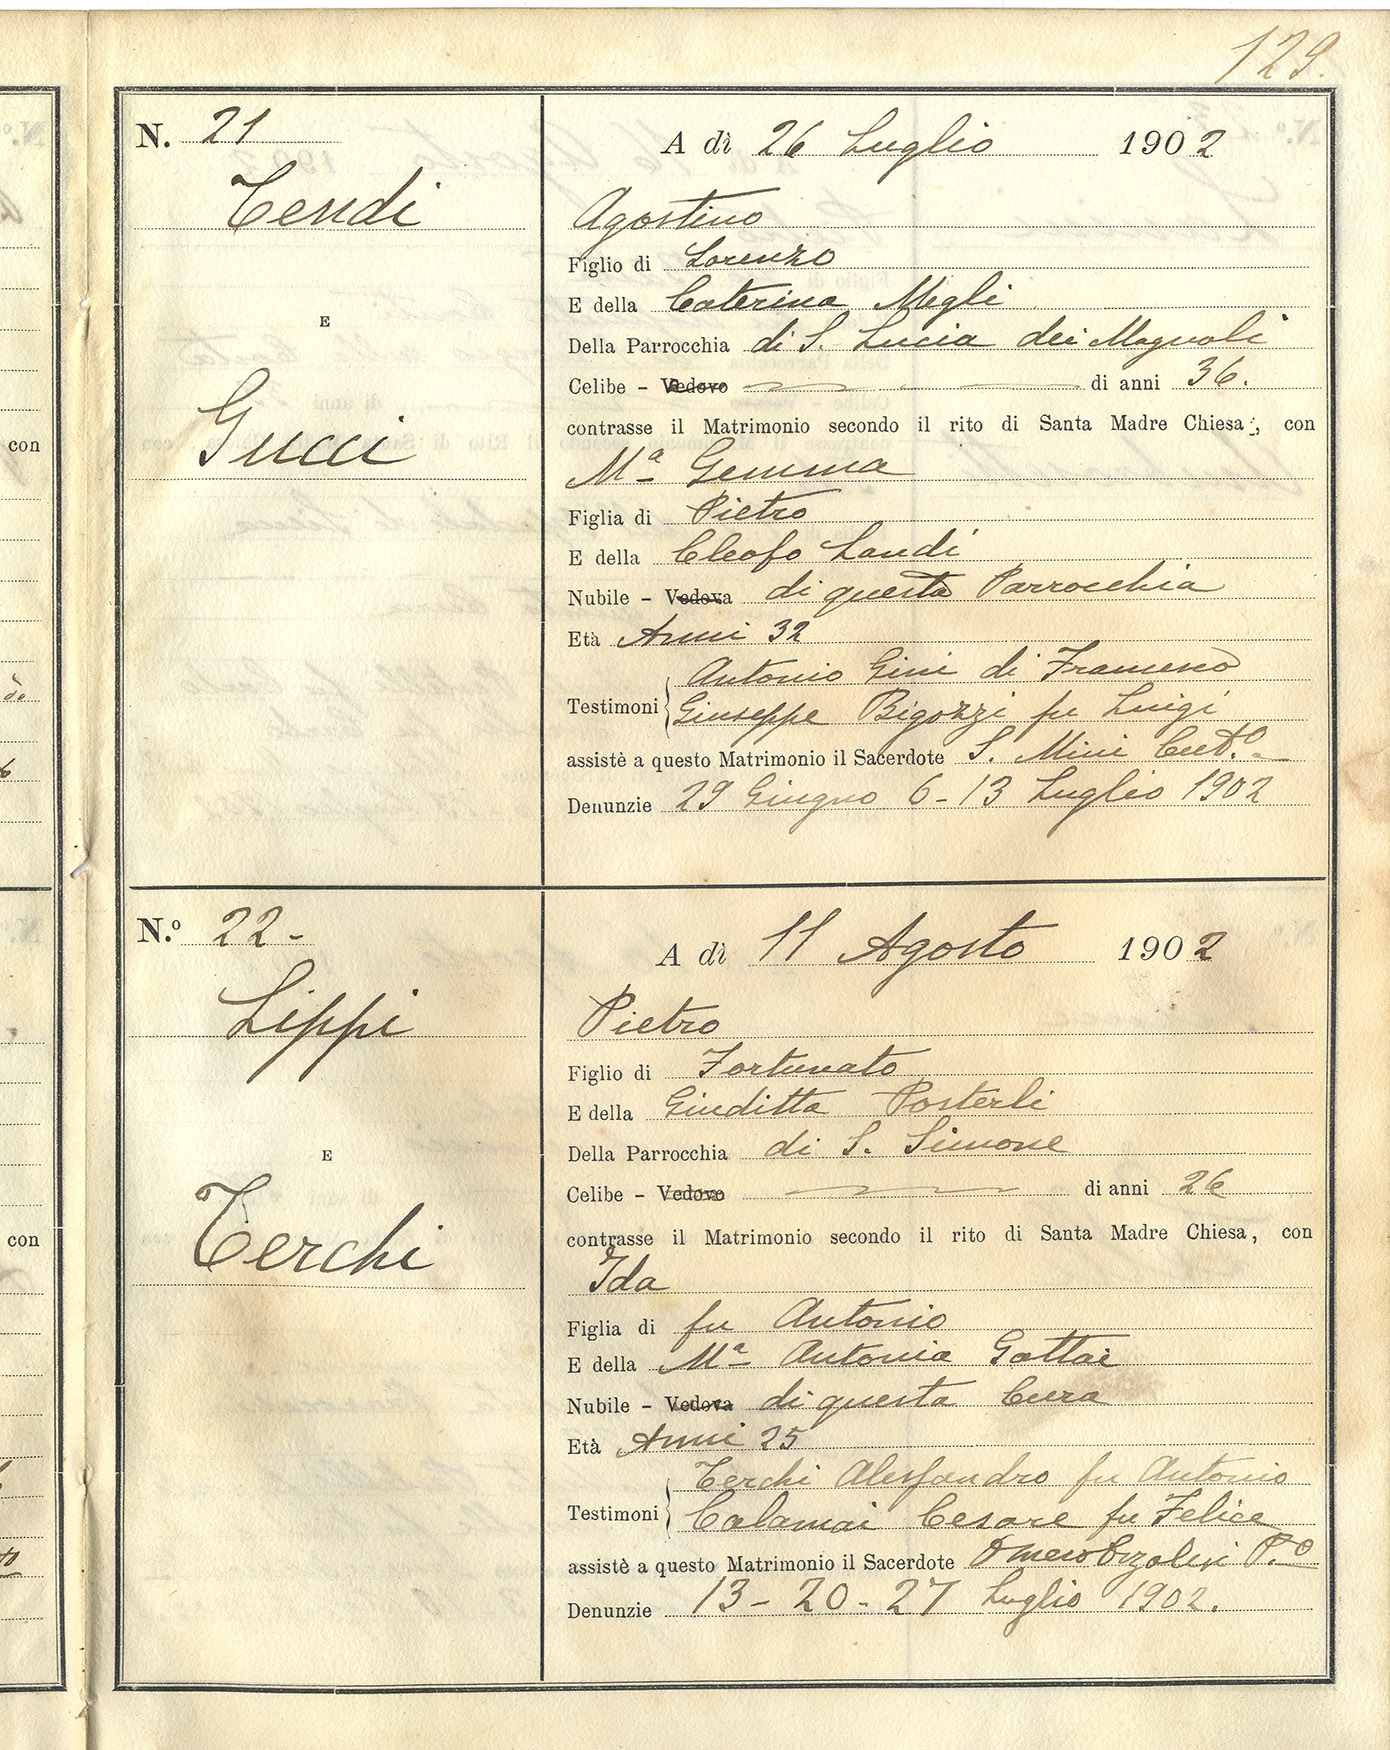 129.
N. 21
A dì 26 Luglio 1902
Tendi
Agostino
Figlio di Lorenzo
E della Caterina Megli
E
Della Parrocchia di S. Lucia dei Magnoli
Celibe - Vedovo di anni 36.
contrasse il Matrimonio secondo il rito di Santa Madre Chiesa, con
Gucci
Mª Gemma
Figlia di Pietro
E della Cleofe Landi
Nubile - Vedova di questa Parrocchia
Età Anni 32
Testimoni Antonio Gini di Francesco
Giuseppe Bigozzi fu Luigi
assistè a questo Matrimonio il Sacerdote S. Mini
Denunzie 29 Giugno 6-13 Luglio 1902
N.º 22-
A dì 11 Agosto 1902
Lippi
Pietro
Figlio di Fortunato
E della Giuditta Posterli
Della Parrocchia di S. Simone
E
Celibe - Vedovo di anni 26
contrasse il Matrimonio secondo il rito di Santa Madre Chiesa, con
Terchi
Ida
Figlia di fu Antonio
E della Mª Antonia Gattai
Nubile - Vedova di questa Cura
Età Anni 25
Testimoni Terchi Alessandro fu Antonio
Calamai Cesare fu Felice
assistè a questo Matrimonio il Sacerdote
Denunzie 13-20-27 Luglio 1902.
con
con